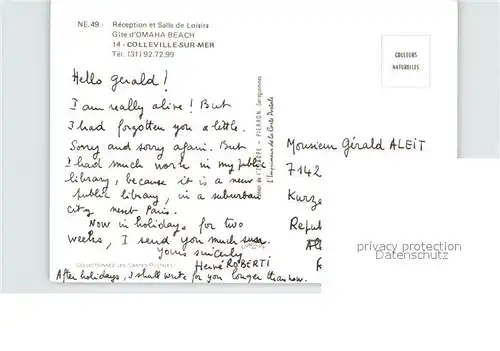 NE.49.- Réception et Salle de Loisirs
Gîte d'OMAHA BEACH
14 - COLLEVILLE-SUR-MER
Tél. (31) 92.72.99
COULEURS
NATURELLES
Hello Gerald !
I am really alive ! But
I had forgotten you a little.
Sorry and sorry again. But
I had much work in my public
library, because it is a new
public library, in a suburban
city next Paris.
Now in holidays for two
weeks, I send you much
Yours sincerly
Hervé ROBERTI
COLLECTIONNEZ LES CARTES POSTALES
After holidays, I shall write for you longer than now.
PIERRON, Sarreguemines
L'Imprimeur de la Carte Postale
Monsieur Gérald ALEIT
7142
Kurze
Repub
privacy protection
Datenschutz